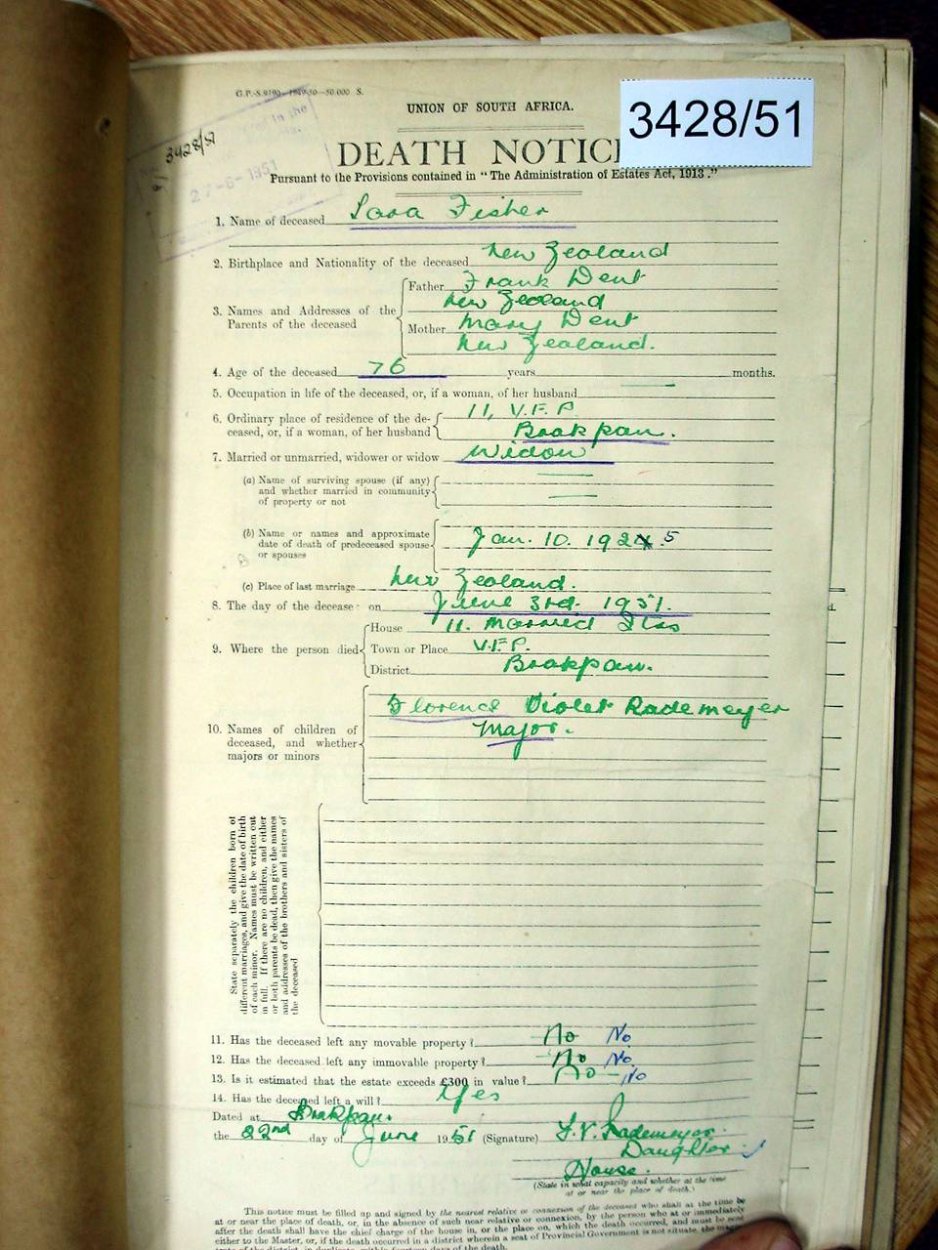 G.P.-S.9190—1949-50—50,000 S.
3428/51
UNION OF SOUTH AFRICA.
3428/51
DEATH NOTIC
27-6-1951
Pursuant to the Provisions contained in “The Administration of Estates Act, 1913.”
1. Name of deceased Sara Fisher
2. Birthplace and Nationality of the deceased New Zealand
3. Names and Addresses of the Parents of the deceased
Father Frank Dent
New Zealand
Mother Mary Dent
New Zealand.
4. Age of the deceased 76 years months.
5. Occupation in life of the deceased, or, if a woman, of her husband —
6. Ordinary place of residence of the de-
ceased, or, if a woman, of her husband
11, V.F.P.
Brakpan.
7. Married or unmarried, widower or widow Widow
(a) Name of surviving spouse (if any)
and whether married in community
of property or not
(b) Name or names and approximate
date of death of predeceased spouse
or spouses
Jan. 10. 1925
(c) Place of last marriage New Zealand.
8. The day of the decease on June 3rd. 1951.
9. Where the person died
House 11. Married Qtrs
Town or Place V.F.P.
District Brakpan.
10. Names of children of
deceased, and whether
majors or minors
Florence Violet Rademeyer
Major.
State separately the children born of
different marriages, and give the date of birth
of each minor. Names must be written out
in full. If there are no children, and either
or both parents be dead, then give the names
and addresses of the brothers and sisters of
the deceased
11. Has the deceased left any movable property? No No
12. Has the deceased left any immovable property? No No
13. Is it estimated that the estate exceeds £300 in value? No – No
14. Has the deceased left a will? Yes
Dated at Brakpan.
the 22nd day of June 1951 (Signature) F.V. Rademeyer.
Daughter
House.
(State in what capacity and whether at the time
at or near the place of death.)
This notice must be filled up and signed by the nearest relative or connexion of the deceased who shall at the time be
at or near the place of death, or, in the absence of such near relative or connexion, by the person who at or immediately
after the death shall have the chief charge of the house in, or the place on, which the death occurred, and must be sent
either to the Master, or, if the death occurred in a district wherein a seat of Provincial Government is not situate, the